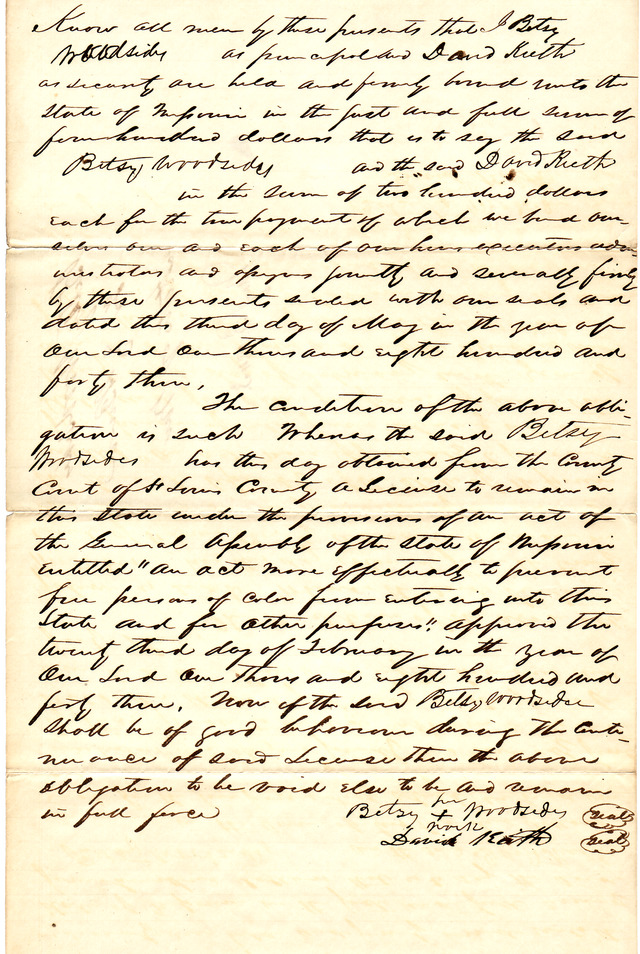 Know all men by these presents that I Betsy
Woodsides as principal and David Keith
as security are held and firmly bound unto the
State of Missouri in the just and full sum of
four hundred dollars that is to say the said
Betsy Woodsides and the said David Keith
in the sum of two hundred dollars
each for the true payment of which we bind our-
selves our and each of our heirs executors adm-
inistrators and assigns jointly and severally firmly
by these presents sealed with our seals and
dated this third day of May in the year of
Our Lord One thousand eight hundred and
forty three.
The condition of the above obli-
gation is such Whereas the said Betsy
Woodsides has this day obtained from the County
Court of St Louis County a License to remain in
this State under the provisions of an act of
the General Assembly of the State of Missouri
Entitled "An act more effectually to prevent
free persons of color from entering into this
State and for other purposes". approved the
twenty third day of February in the year of
Our Lord One thousand eight hundred and
forty three. Now if the said Betsy Woodsides
shall be of good behaviour during the conti-
nuance of said License then the above
obligation to be void else to be and remain
in full force
Betsy her x mark Woodsides seal
David Keith seal